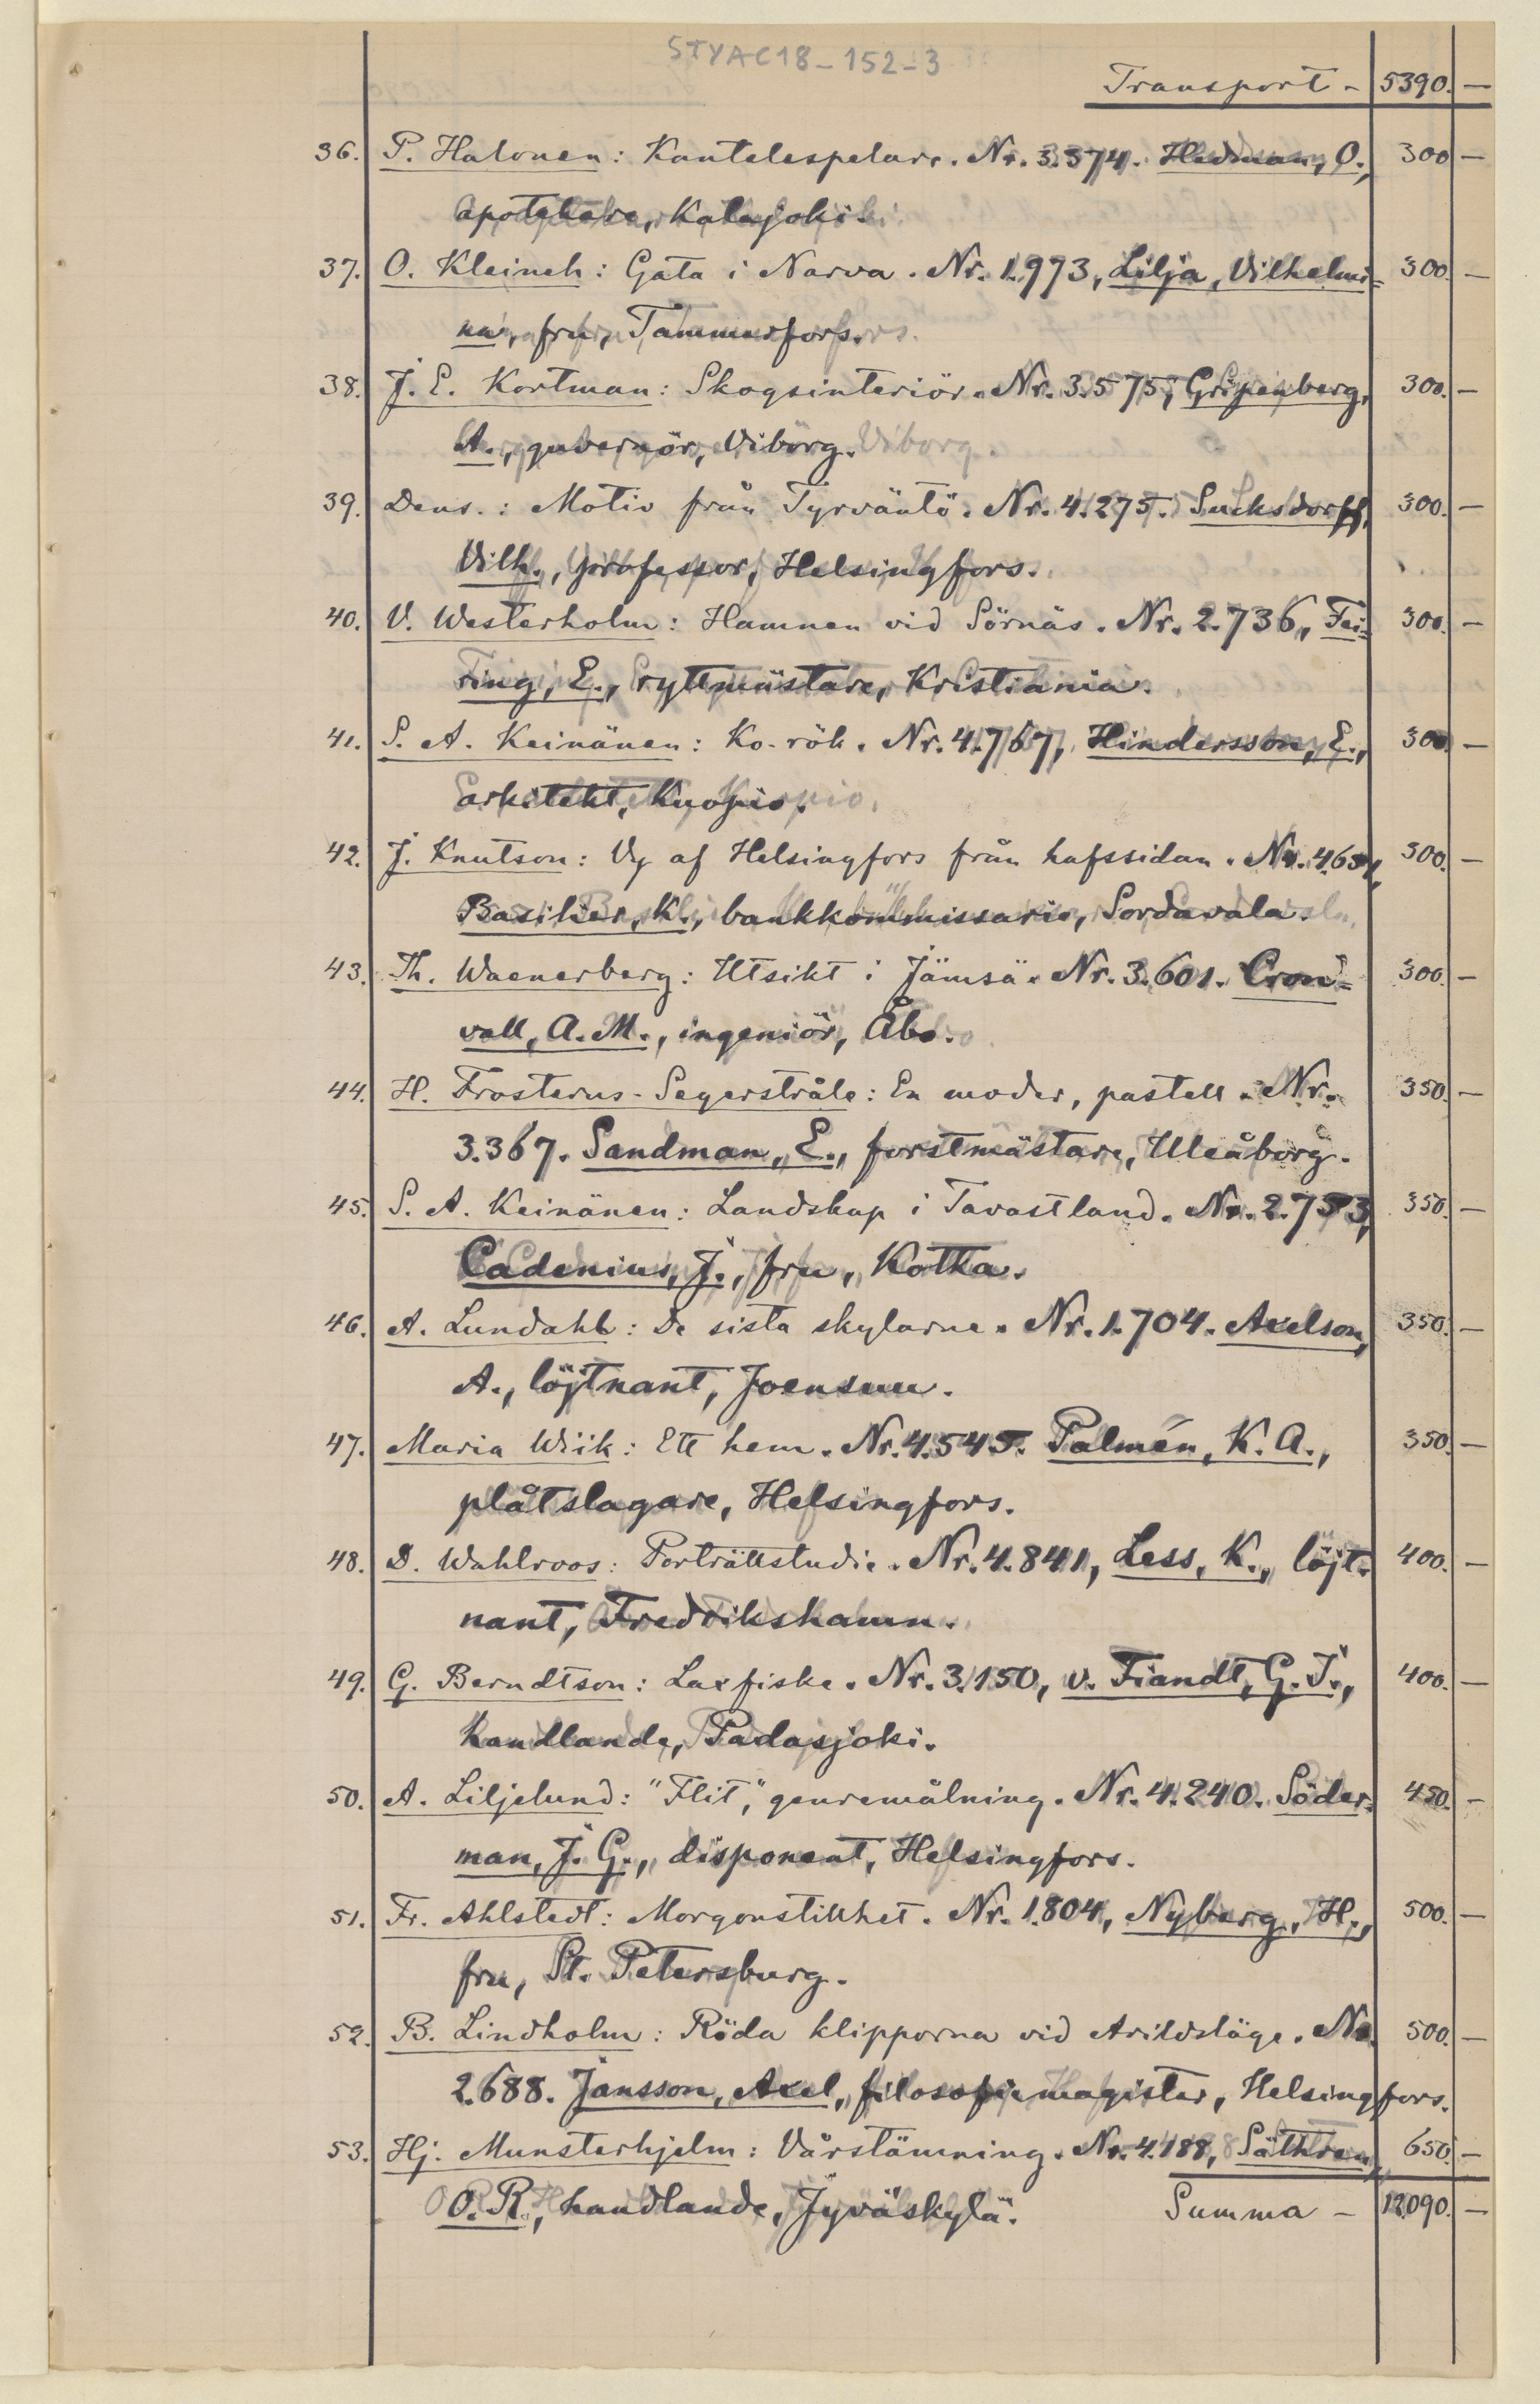 STYAC18-152-3
Transport - 5390. -
36. P. Halonen: Kantelespelare. Nr. 3.374. Hedman, O., 300 -
apotekare, Kalajoki.
37. O. Kleineh: Gata i Narva. Nr. 1.973, Lilja, Vilhelmi- 300. -
na, fru, Tammerfors.
38. J. E. Kortman: Skogsinteriör. Nr. 3.575, Gripenberg, 300. -
A., guvernör, Viborg. Viborg.
39. Dens.: Motiv från Tyrväntö. Nr. 4.275. Sucksdorff, 300. -
Vilh., professor, Helsingfors.
40. V. Westerholm: Hamnen vid Sörnäs. Nr. 2.736, Fei- 300. -
ring, E., ryttmästare, Kristiania.
41. S. A. Keinänen: Ko-rök. Nr. 4.767, Hindersson, E., 300. -
arkitekt, Kuopio.
42. J. Knutson: Vy af Helsingfors från hafssidan. Nr. 300. -
Basilier, K., bankkommissarie, Sordavala.
43. Th. Waenerberg: Utsikt i Jämsä. Nr. 3.601. Cron- 300. -
vall, A. M., ingeniör, Åbo.
44. H. Frosterus-Segerstråle: En moder, pastell. Nr. 350. -
3.367. Sandman, E., forstmästare, Uleåborg.
45. S. A. Keinänen: Landskap i Tavastland. Nr. 2.753, 350. -
Cadenius, J., fru, Kotka.
46. A. Lundahl: De sista skylarne. Nr. 1.704. Axelson, 350. -
A., löjtnant, Joensuu.
47. Maria Wiik: Ett hem. Nr. 4.545. Palmén, K. A., 350. -
plåtslagare, Helsingfors.
48. D. Wahlroos: Porträttstudie. Nr. 4.841, Less, K., löjt- 400. -
nant, Fredrikshamn.
49. G. Berndtson: Laxfiske. Nr. 3.150, v. Fiandt, G. J., 400. -
handlande, Padasjoki.
50. A. Liljelund: "Flit," genremålning. Nr. 4.240. Söder- 450. -
man, J. G., disponent, Helsingfors.
51. Fr. Ahlstedt: Morgonstillhet. Nr. 1.804, Nyberg, H., 500. -
fru, St. Petersburg.
52. B. Lindholm: Röda klipporna vid Arildsläge. Nr. 500. -
2.688. Jansson, Axel, filosofiemagister, Helsingfors.
53. Hj. Munsterhjelm: Vårstämning. Nr. 4.188, Säthren, 650. -
O. R., handlande, Jyväskylä. Summa - 12.090. -